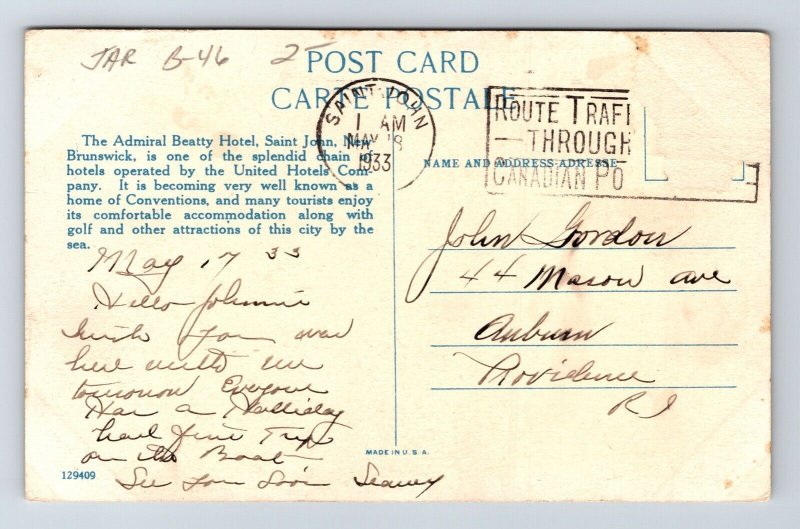 JAR B-46 25
POST CARD
CARTE POSTALE
SAINT JOHN
1 AM
MAY 18
1933
ROUTE TRAFI
THROUGH
CANADIAN PO
The Admiral Beatty Hotel, Saint John, New
Brunswick, is one of the splendid chain of
hotels operated by the United Hotels Com-
pany. It is becoming very well known as a
home of Conventions, and many tourists enjoy
its comfortable accommodation along with
golf and other attractions of this city by the
sea.
NAME AND ADDRESS-ADRESSE
May 17 33
Hello Johnnie
wish you were
here with me
tomorrow Everyone
Has a Holliday
had fine Trip
on the Boat
See you Soon
John Gordon
44 Mason ave
Auburn
Providence
R I
MADE IN U.S.A.
129409